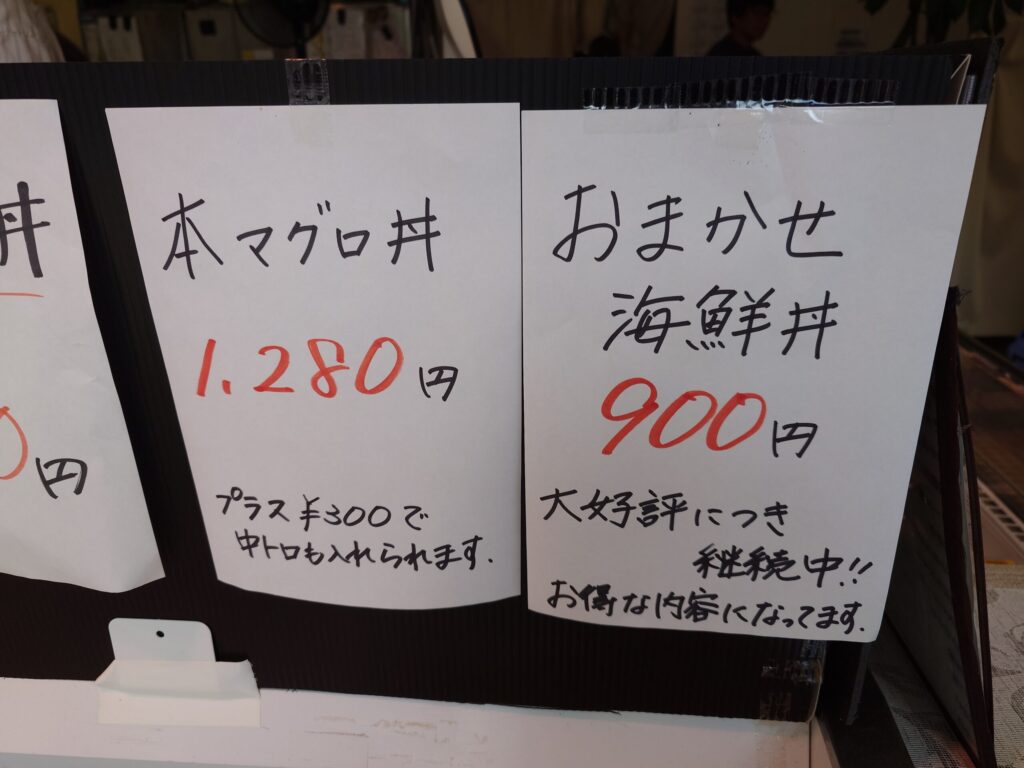 丼
0円
本マグロ丼
1.280円
プラス¥300で
中トロも入れられます.
おまかせ
海鮮丼
900円
大好評につき
継続中!!
お得な内容になってます.